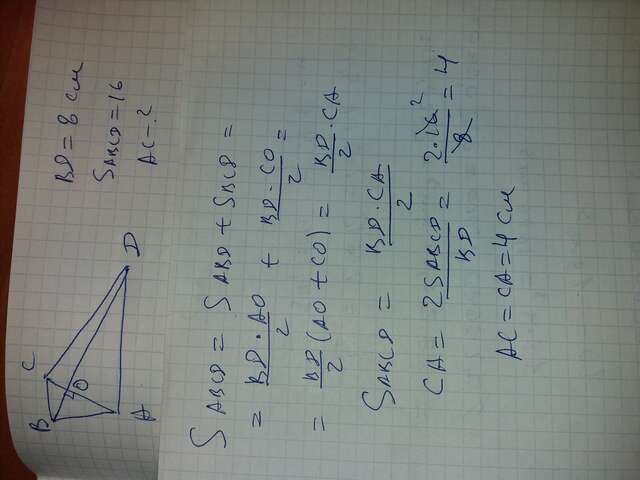 B C
O
A D
BD = 8 см
SABCD = 16
AC - ?
SABCD = SABD + SBCD =
= BD · AO / 2 + BD · CO / 2 =
= BD / 2 (AO + CO) = BD / 2 · CA
SABCD = BD · CA / 2
CA = 2SABCD / BD = 2 · 16 2 / 8 = 4
AC = CA = 4 см